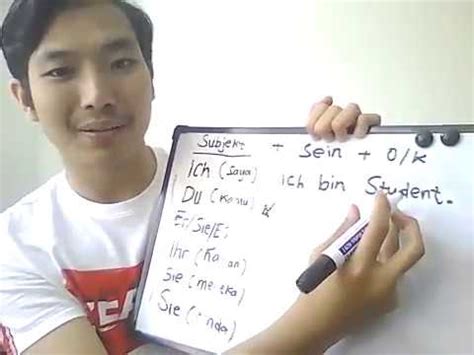 Subjekt + Sein + O/K
Ich (Saya) ich bin Student.
Du (Kamu)
Er/Sie/Es
Ihr
Sie
Sie